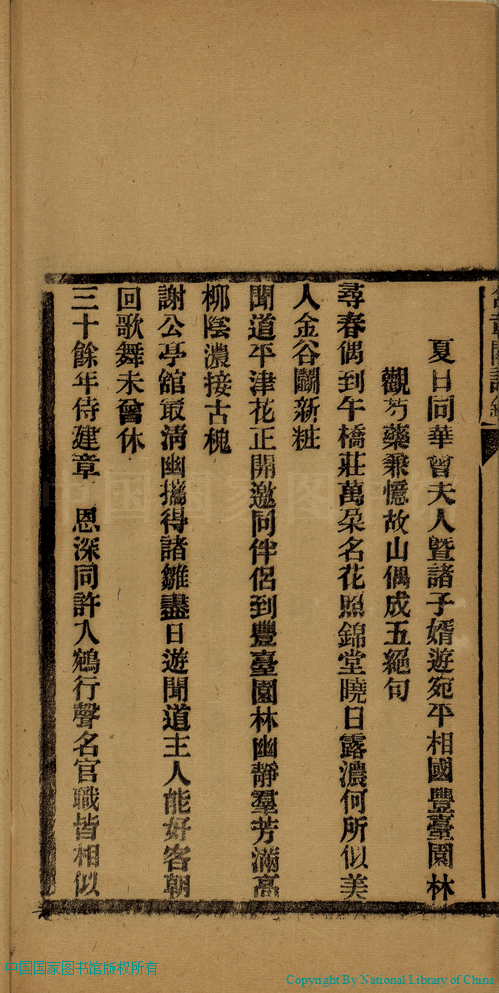 夏日同華曾夫人暨諸子婿遊宛平相國豐臺園林
觀芍藥兼憶故山偶成五絕句
尋春偶到午橋莊萬朶名花照錦堂曉日露濃何所似美
人金谷鬭新粧
聞道平津花正開邀同伴侶到豐臺園林幽靜羣芳滿高
柳陰濃接古槐
謝公亭館最淸幽攜得諸雛盡日遊聞道主人能好客朝
回歌舞未曾休
三十餘年侍建章　恩深同許入鵷行聲名官職皆相似
中国国家图书馆
中国国家图书馆版权所有
Copyright By National Library of China